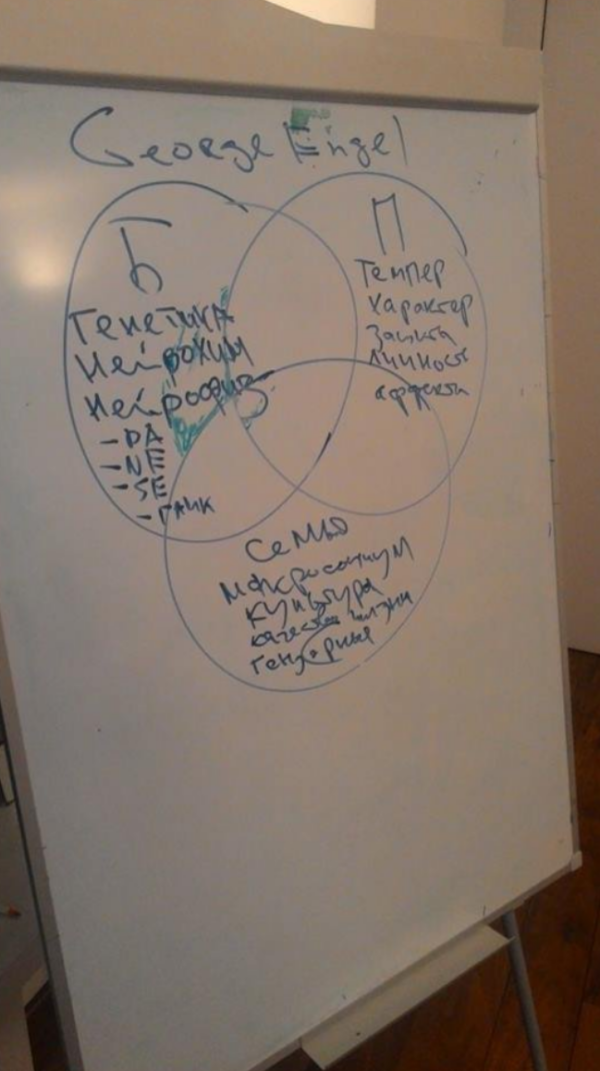 George Engel
Б
Генетика
Нейрохим
Нейрофиз
- DA
- NE
- SE
- ГАМК
П
Темпер
Характер
Защита
Личность
аффекты
Семья
Макросоциум
Культура
качество жизни